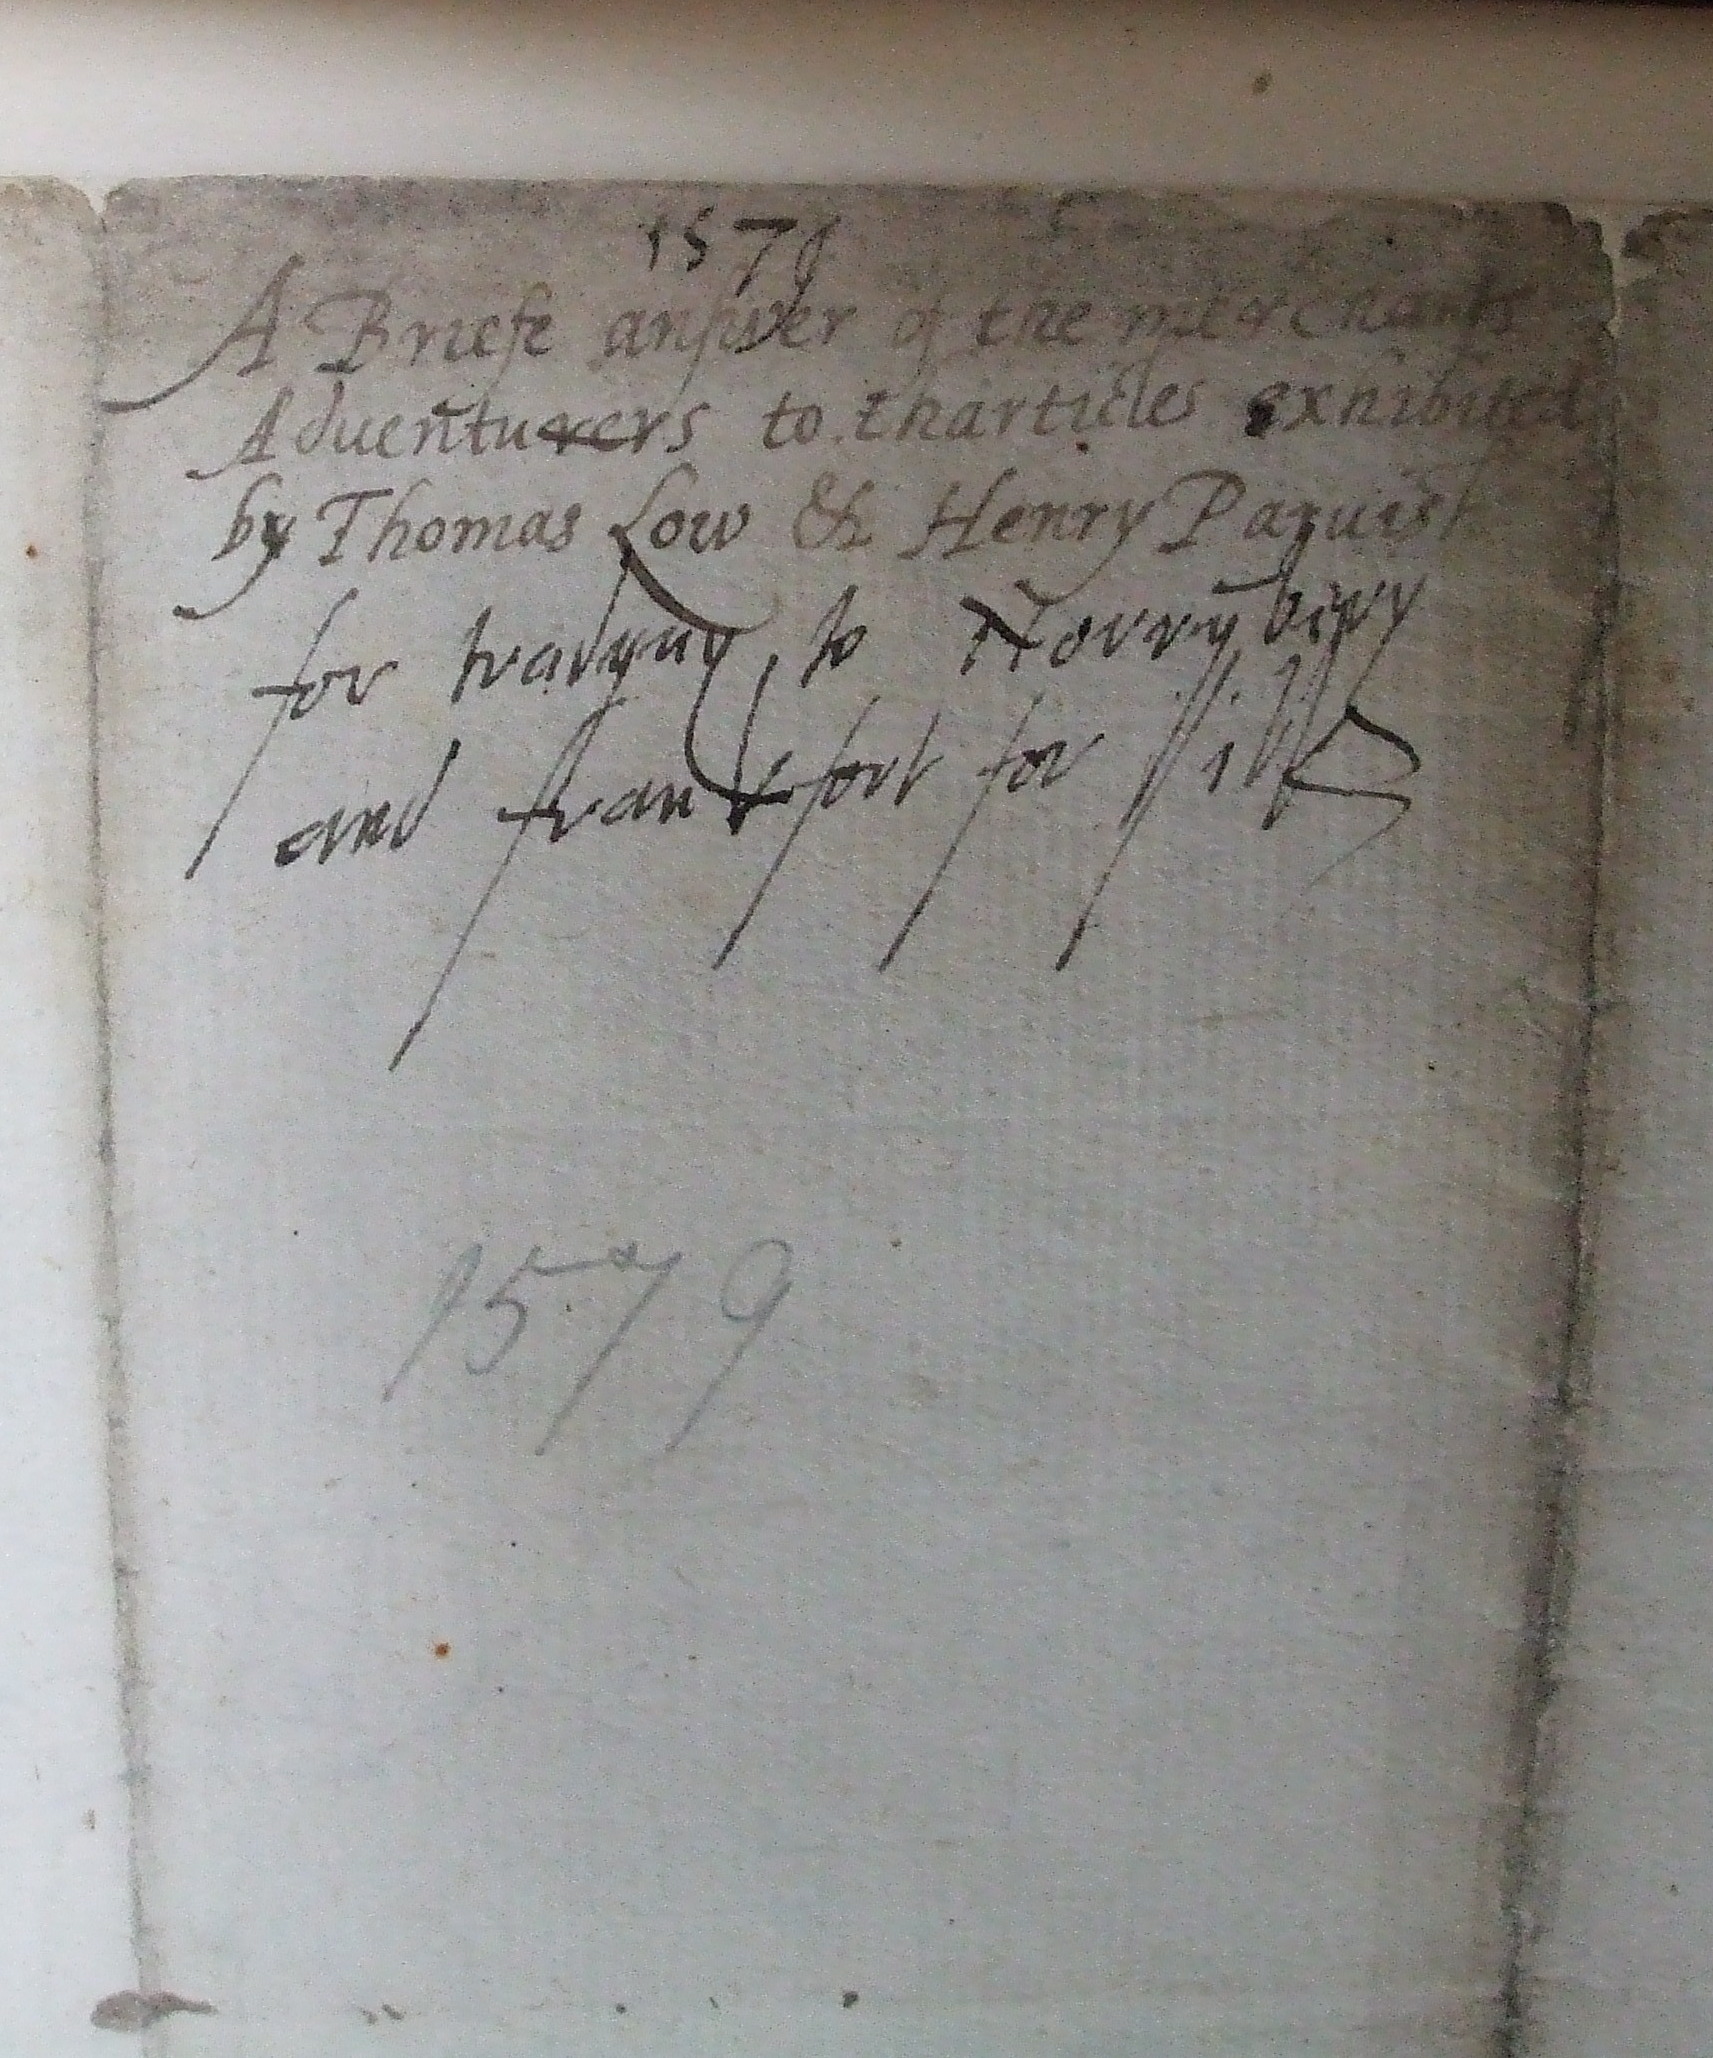 1579
A Briefe answer of the merchants
Aduenturers to tharticles exhibited
by Thomas Low & Henry Paruish
for tradyng to
and frankfort for silks
1579